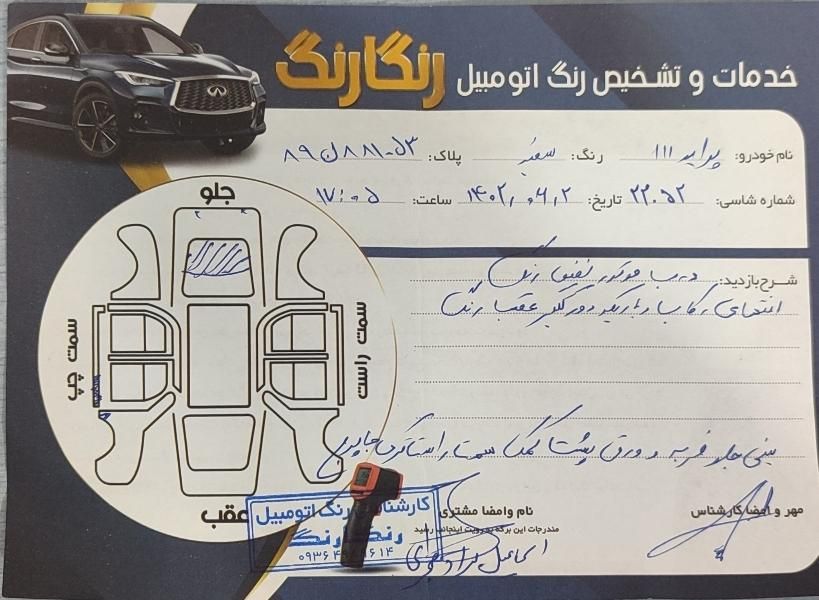 خدمات و تشخیص رنگ اتومبیل رنگارنگ
نام خودرو: پراید ۱۱۱ رنگ: سفید پلاک: ۵۳-۸۸۱ ل ۸۹
شماره شاسی: ۲۲۰۵۲ تاریخ: ۱۴۰۲،۰۶،۲ ساعت: ۱۷:۰۵
جلو
شرح بازدید: درب موتور نصفش رنگ
انتهای رکاب و باریکه دور گلگیر عقب رنگ
سمت چپ
سمت راست
سینی جلو ضربه و ورق پشت کمک سمت راستا
عقب
مهر و امضا کارشناس
نام وامضا مشتری
مندرجات این برگه به رویت اینجانب رسید
کارشناسی رنگ اتومبیل
رنگارنگ
اسماعیل